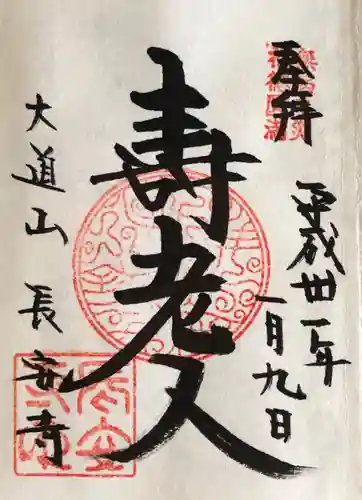 奉拝
平成卅一年
一月九日
寿老人
大道山
長安寺